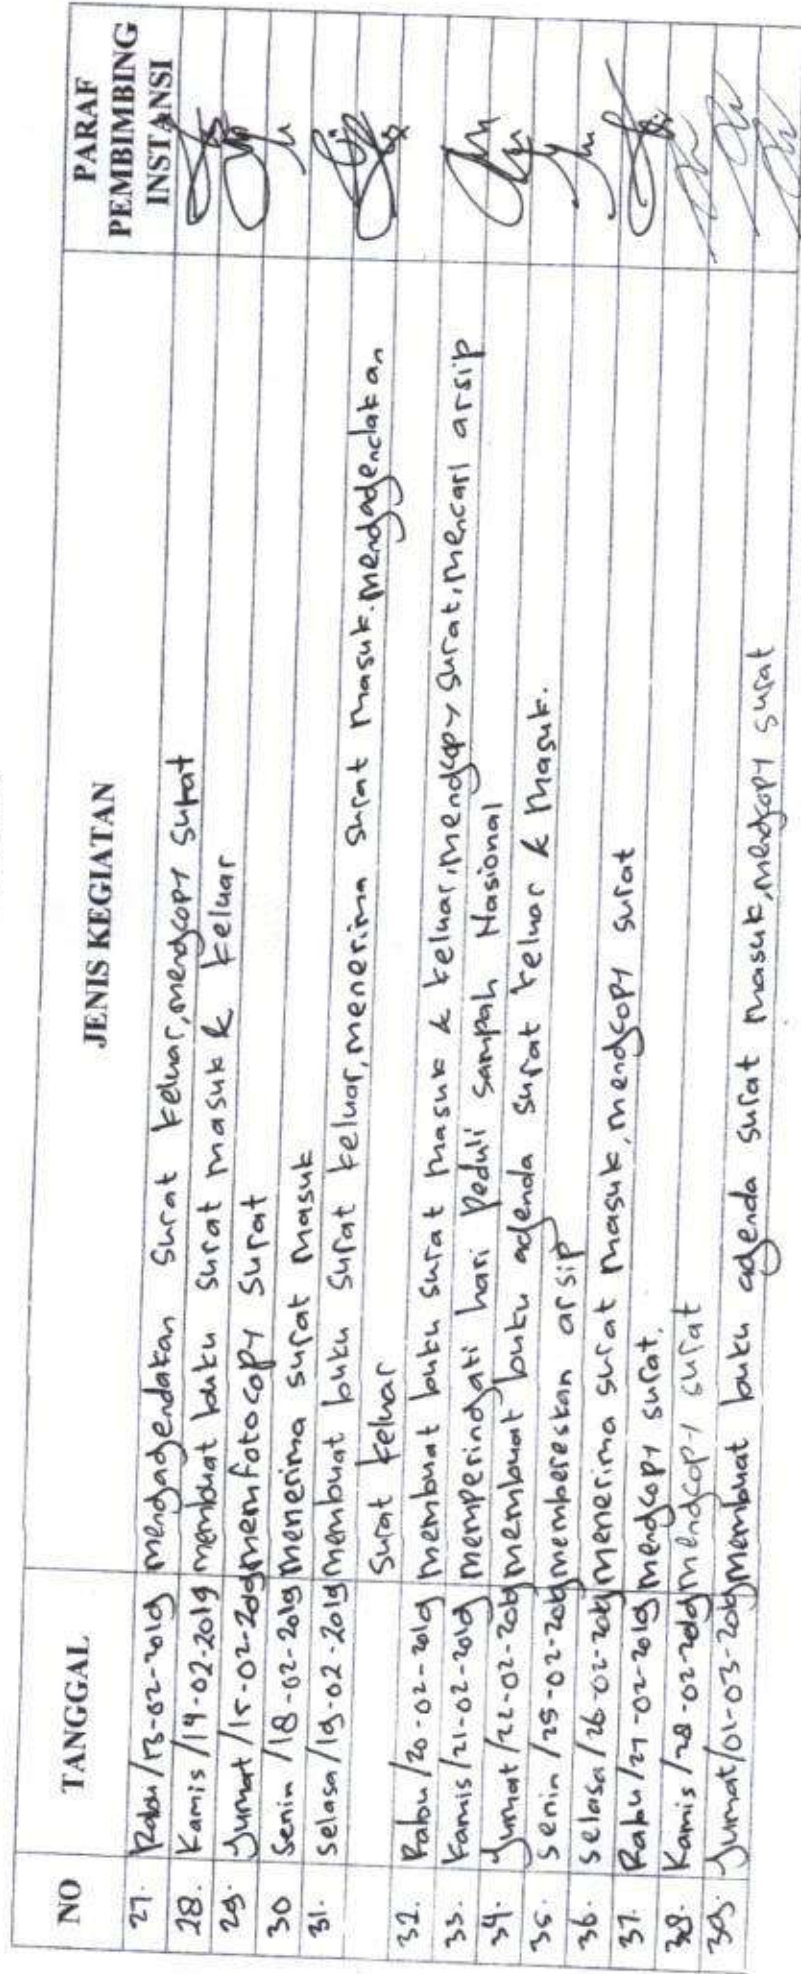 NO TANGGAL JENIS KEGIATAN PARAF PEMBIMBING INSTANSI
27. Rabu/13-02-2019 mengagendakan surat keluar, mengcopy surat
28. Kamis/14-02-2019 membuat buku surat masuk & keluar
29. Jumat/15-02-2019 memfotocopy surat
30 Senin/18-02-2019 menerima surat masuk
31. Selasa/19-02-2019 membuat buku surat keluar, menerima surat masuk. mengagendakan
surat keluar
32. Rabu/20-02-2019 membuat buku surat masuk & keluar, mengcopy surat, mencari arsip
33. Kamis/21-02-2019 memperingati hari Peduli Sampah Nasional
34. Jumat/22-02-2019 membuat buku agenda surat keluar & masuk.
35. Senin/25-02-2019 membereskan arsip
36. Selasa/26-02-2019 menerima surat masuk, mengcopy surat
37. Rabu/27-02-2019 mengcopy surat.
38. Kamis/28-02-2019 mengcopy surat
39. Jumat/01-03-2019 membuat buku agenda surat masuk, mengcopy surat